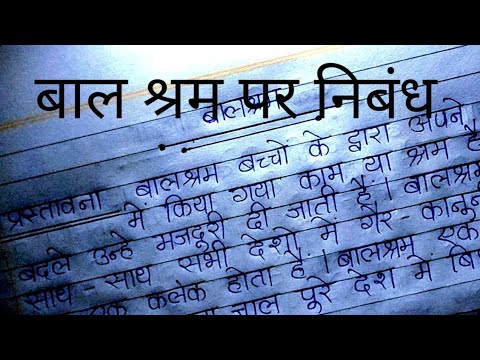 बाल श्रम पर निबंध
बालश्रम
प्रस्तावना बालश्रम बच्चों के द्वारा अपने
में किया गया काम या श्रम है
बदले उन्हे मजदूरी दी जाती है। बालश्रम
साथ - साथ सभी देशो में गैर - कानून
कलंक होता है। बालश्रम एक
जाल पूरे देश में